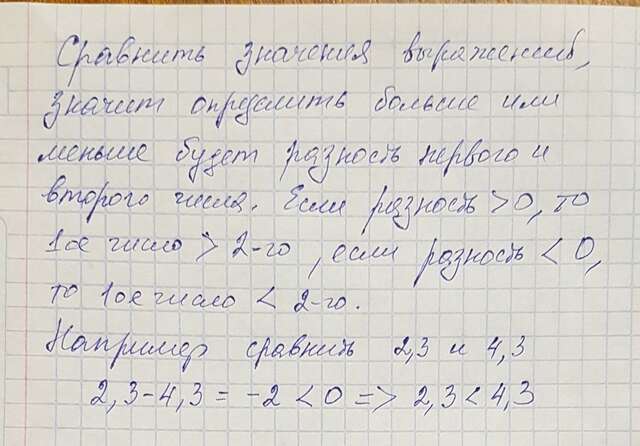 Сравнить значения выражений,
значит определить больше или
меньше будет разность первого и
второго числа. Если разность >0, то
1ое число > 2-го, если разность < 0,
то 1ое число < 2-го.
Например сравнить 2,3 и 4,3
2,3-4,3 = -2 < 0 => 2,3 < 4,3